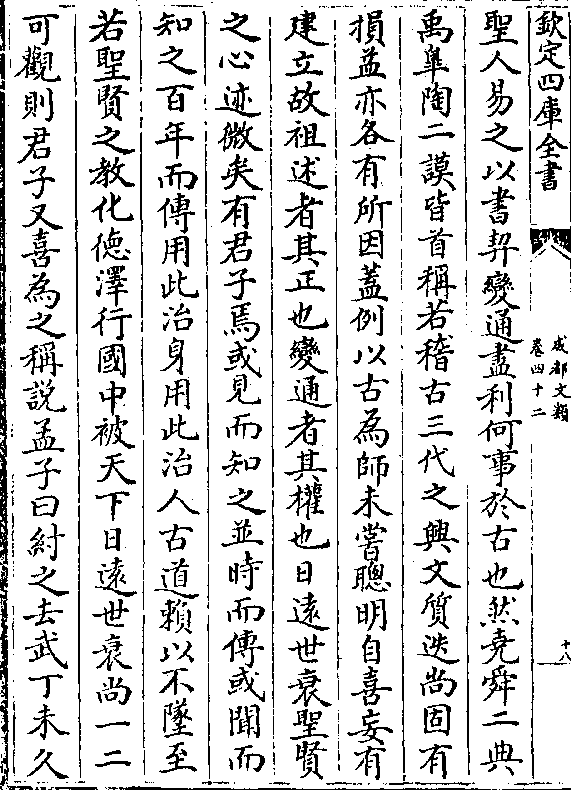 欽定四庫全書
成都文類
卷四十二
十八
聖人易之以書契變通盡利何事於古也然堯舜二典
禹臯陶二謨皆首稱若稽古三代之興文質迭尚固有
損益亦各有所因蓋例以古為師未嘗聰明自喜妄有
建立故祖述者其正也變通者其權也日逺世衰聖賢
之心迹微矣有君子焉或見而知之並時而傳或聞而
知之百年而傳用此治身用此治人古道頼以不墜至
若聖賢之教化徳澤行國中被天下日逺世衰尚一二
可觀則君子又喜為之稱說孟子曰紂之去武丁未久